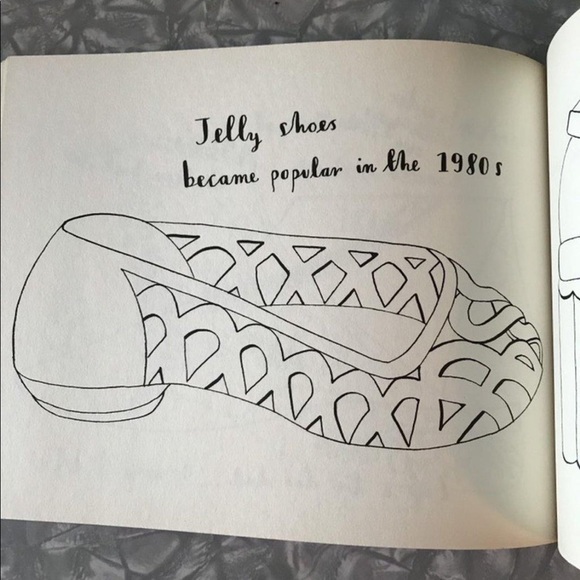 Jelly shoes
became popular in the 1980s